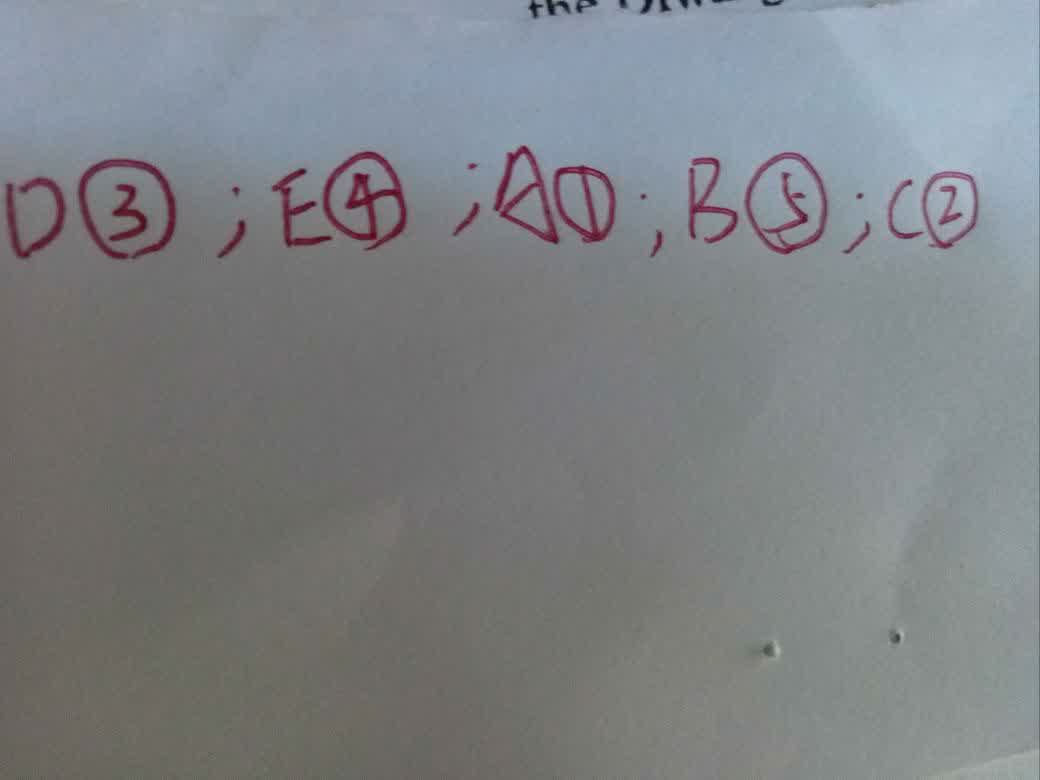 the
D③;E④;A①;B⑤;C②